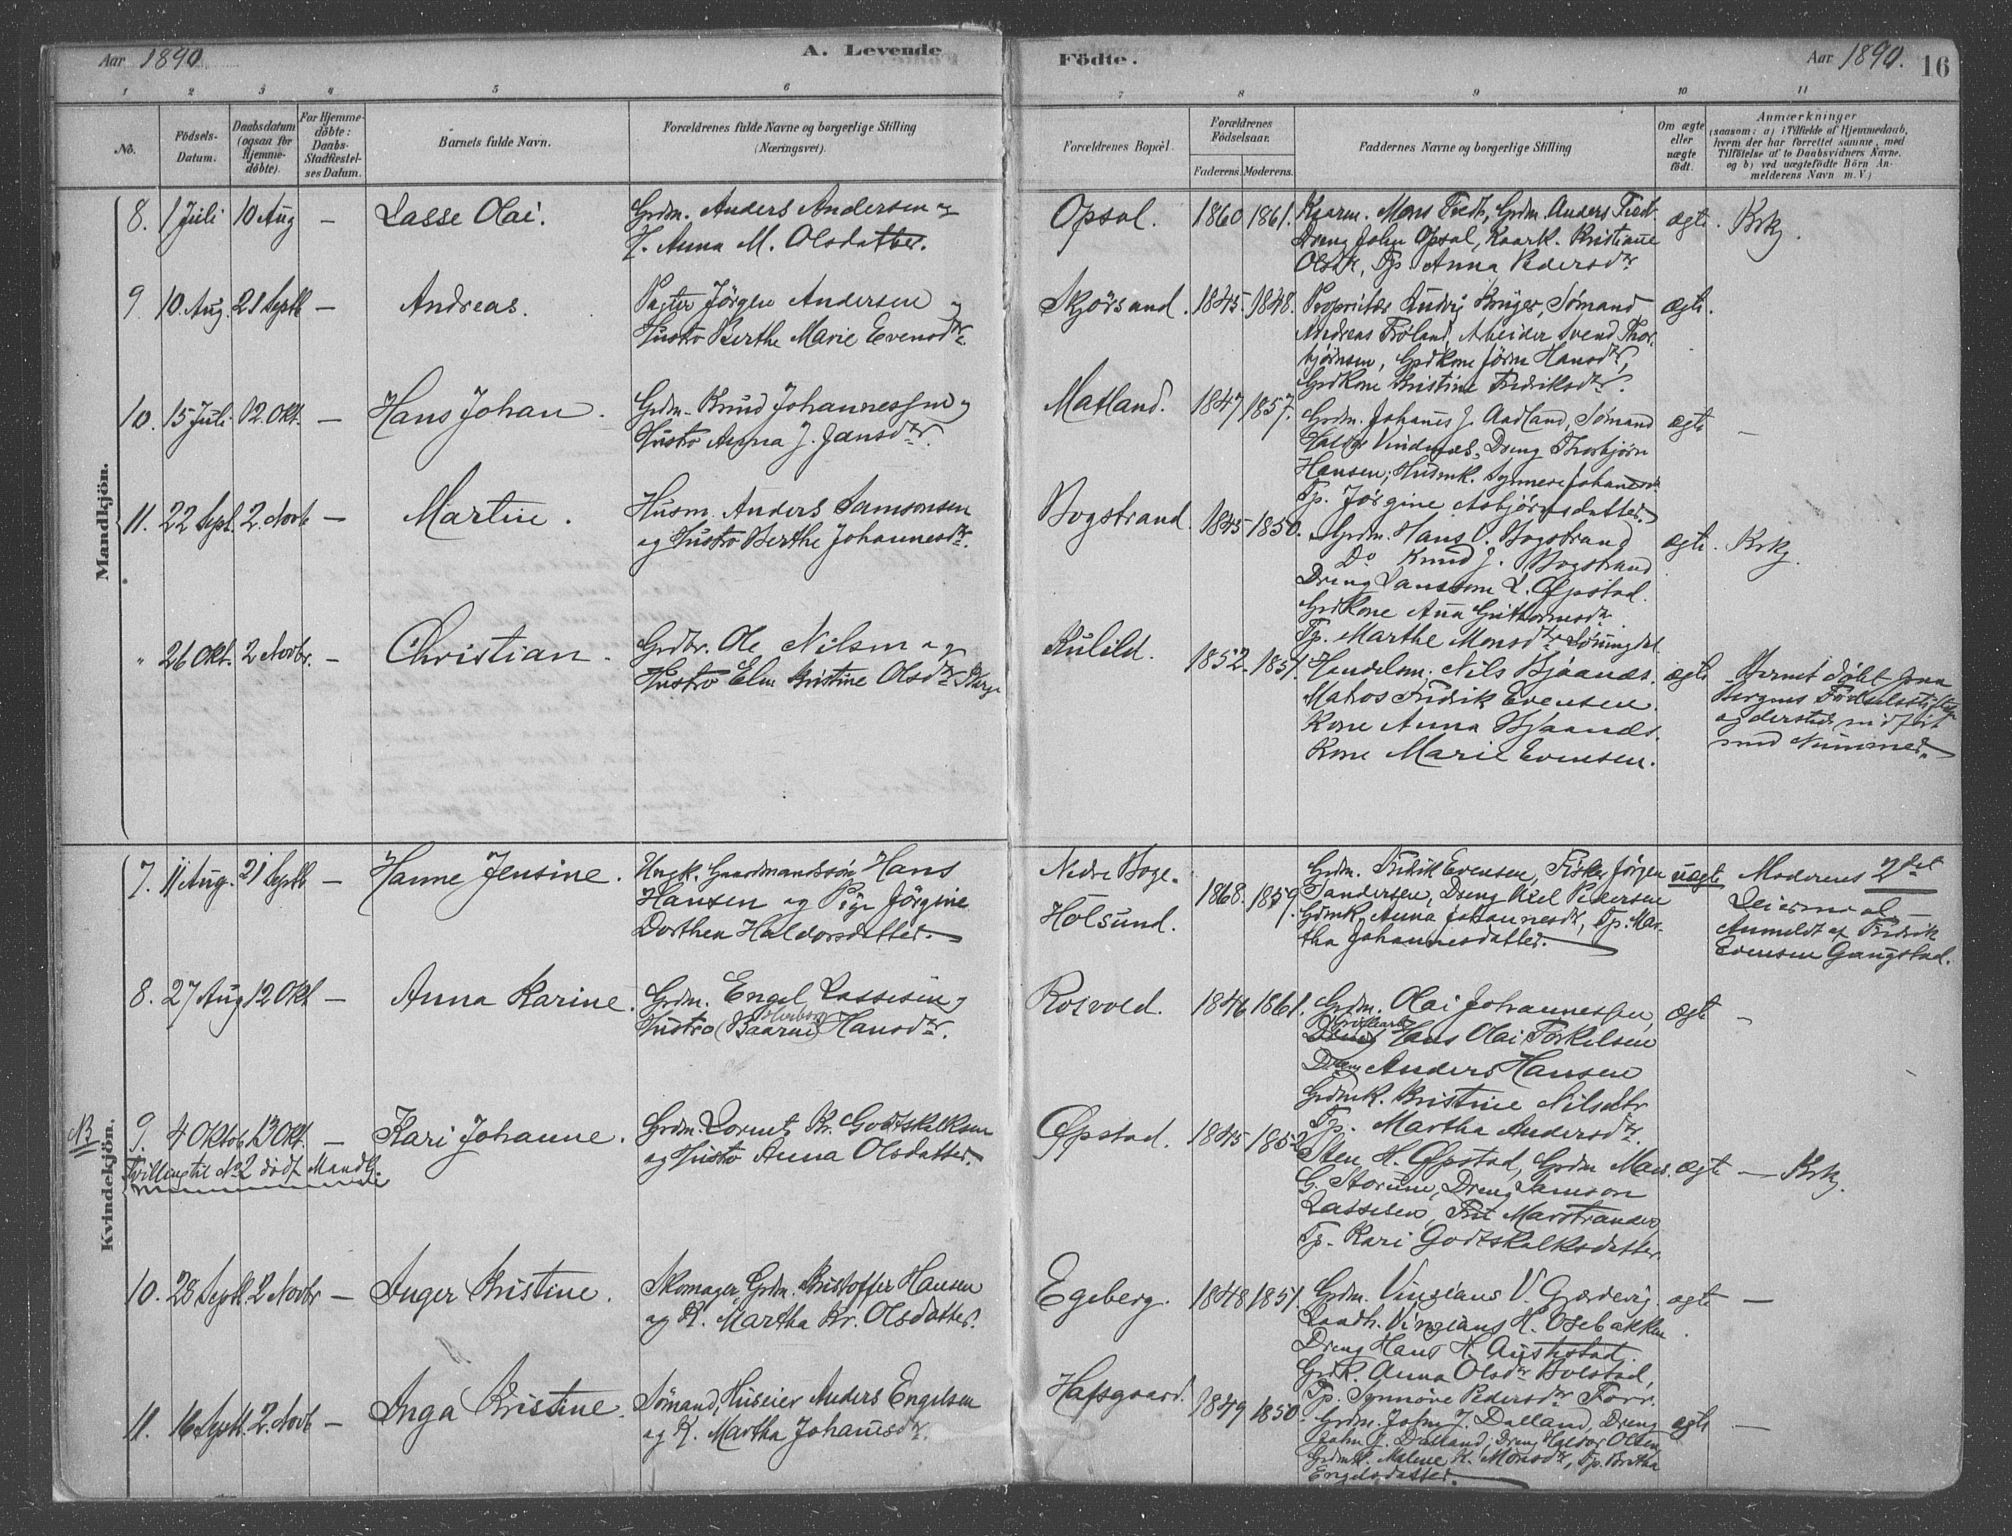 Aar 1890.
A. Levende
Födte.
Aar 1890.
16
1 2 3 4 5 6 7 8 9 10 11
No.
Födsels-
Datum.
Daabsdatum
(ogsaa for
Hjemme-
döbte).
For Hjemme-
döbte:
Daabs-
Stadfæstel-
ses Datum.
Barnets fulde Navn.
Forældrenes fulde Navne og borgerlige Stilling
(Næringsvei).
Forældrenes Bopæl.
Forældrenes
Födselsaar.
Faderens. Moderens.
Faddernes Navne og borgerlige Stilling
Om ægte
eller
uægte
födt.
Anmærkninger
(saasom: a) i Tilfælde af Hjemmedaab,
hvem der har forrettet samme, med
Tilföielse af to Daabsvidners Navne,
og b) ved uægtefödte Börn An-
melderens Navn m. V.)
Mandkjön.
8. 1 Juli 10 Aug – Lasse Olai.
Grdm. Anders Andersen og
H. Anna M. Olsdatter.
Opsal. 1860 1861.
Kaarm. Mons Tvedt, Grdm. Anders Tvedt.
Dreng John Opsal, Kaark. Kristiane
Olsdtr, Tp. Anna Pedersdtr
ægte. Krkg.
9. 10. Aug. 21 Septb – Andreas.
Pagter Jörgen Andersen og
Hustro Berthe Marie Evensdtr.
Skjörsand. 1845. 1848.
Proprietær Ludvig Krüger, Sömand
Andreas Fröland, Arbeider Svend Thor-
björnsen, Grdkone Jörm Hansdtr,
Grdkone Kristine Fredriksdtr.
ægte.
10. 15 Juli 12. Okt. – Hans Johan.
Grdm. Knud Johannessen og
Hustro Anna J. Jansdtr.
Matland. 1847 1857.
Grdm. Johanes J. Aadland, Sömand
Haldor Vindenæs, Dreng Thorbjörn
Hansen, Husmk. Synneve Johanesdr
Tp. Jörgine Asbjörnsdatter.
ægte –
11. 22 Sept. 2. Novb – Martin.
Husm. Anders Samsonsen
og Hustro Berthe Johannesdtr.
Bogstrand. 1845. 1850.
Grdm. Hans O. Bogstrand
Do Knud J. Bogstrand
Dreng Samson L. Øpstad.
Grdkone Ana Guthormsdr.
Tp. Marthe Monsdtr
ægte. Krkg.
" 26 Okt. 2 Novbr. – Christian.
Grdbr. Ole Nilsen og
Hustro Elen Kristine Olsdtr
Kulild. 1852. 1851.
Handelsm. Nils Bjaanæs.
Matros Fredrik Evensen.
Kone Anna Bjaanæs.
Kone Marie Evensen.
ægte
Barnet döbt fra
Bergens Födselsstiftelse
og dersteds indfört
med Nummer.
Kvindekjön.
7. 11 Aug. 21 Septb – Hanne Jensine.
Ungk. Gaardmandssön Hans
Hansen og Pige Jörgine
Dorthea Haldorsdatter.
Nedre Boge.
Holsund.
1868. 1859.
Grdm. Fredrik Evensen, Fisker Jörgen
Sandersen, Dreng Axel Pedersen
Grdmk. Anna Johannesdt, Tp. Mar-
tha Johannesdatter.
uægte
Moderens 2det
Leiermaal –
Anmeldt af Fredrik
Evensen Gangstad.
8. 27 Aug 12 Okt – Anna Karine.
Grdm. Engel Lassesen og
Hustro (Baarni) Hansdtr.
Roivold. 1846 1861.
Grdm. Olai Johannessen,
Hans Olai Torkelsen
Dreng Anders Hansen
Grdmk. Kristine Nilsdtr
Tp. Martha Andersdtr.
ægte –
NB
9. 4 Oktob. 13 Okt. – Kari Johanne.
Tvilling til No 2 dödf. Mandkj.
Grdm. Lorents Kr. Godtskalksen
og Hustro Anna Olsdatter.
Øpstad. 1845 1852
Sten H. Øpstad, Grdm Mans.
G. Storum, Dreng Samson
Lassesen, Frk Marstrander,
Tp. Kari Godtskalksdatter.
ægte – Krkg.
10. 28 Septb. 2 Novbr – Inger Kristine.
Skomager, Grdm. Kristoffer Hansen
og H. Martha Kr. Olsdatter.
Egeberg. 1848 1851.
Grdm. Vinzians V. Gjærdevig.
Landh. Vinzians H. Osebakken
Dreng Hans H. Austestad.
Grdk. Anna Olsdtr Bolstad,
Tp. Synnöve Pedersdtr Forr.
ægte –
11. 16 Septb. 2. Novb – Inga Kristine.
Sömand, Huseier Anders Engelsen
og H. Martha Johansdtr.
Hafsgaard. 1849 1850
Grdm. John J. Dalland, Dreng
John J. Dalland, Dreng Haldor Olsen
Grdmk. Malene K. Monsdtr, Tp. Britha
Engelsdatter.
ægte –